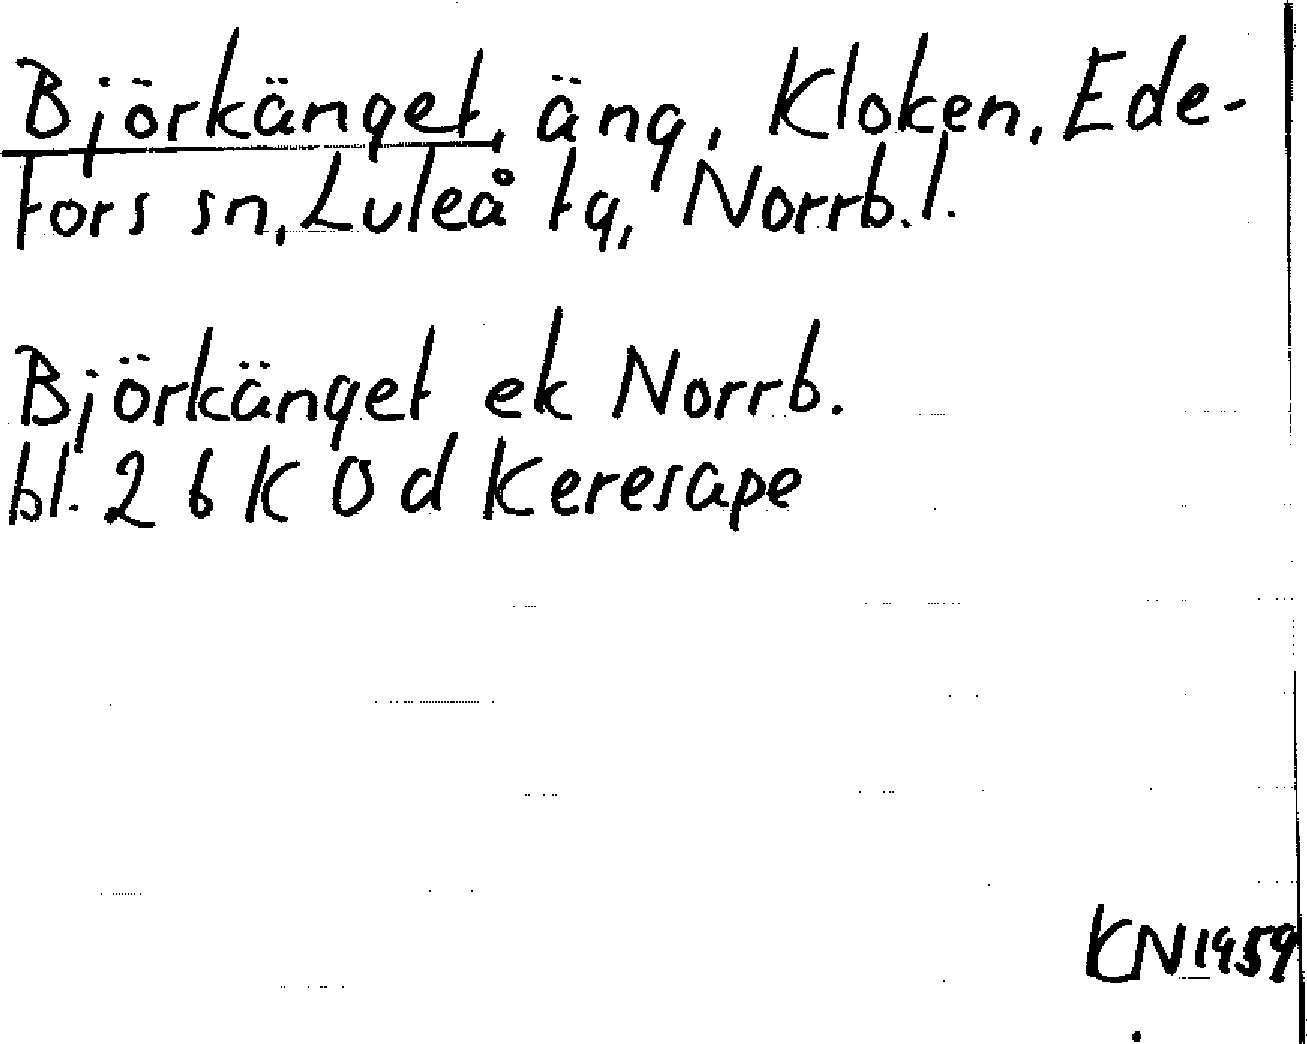 Björkänget, äng, Kloken, Ede-
fors sn, Luleå tg, Norrb. l.
Björkänget ek Norrb.
bl. 26 K 0 d Keresape
KN 1959